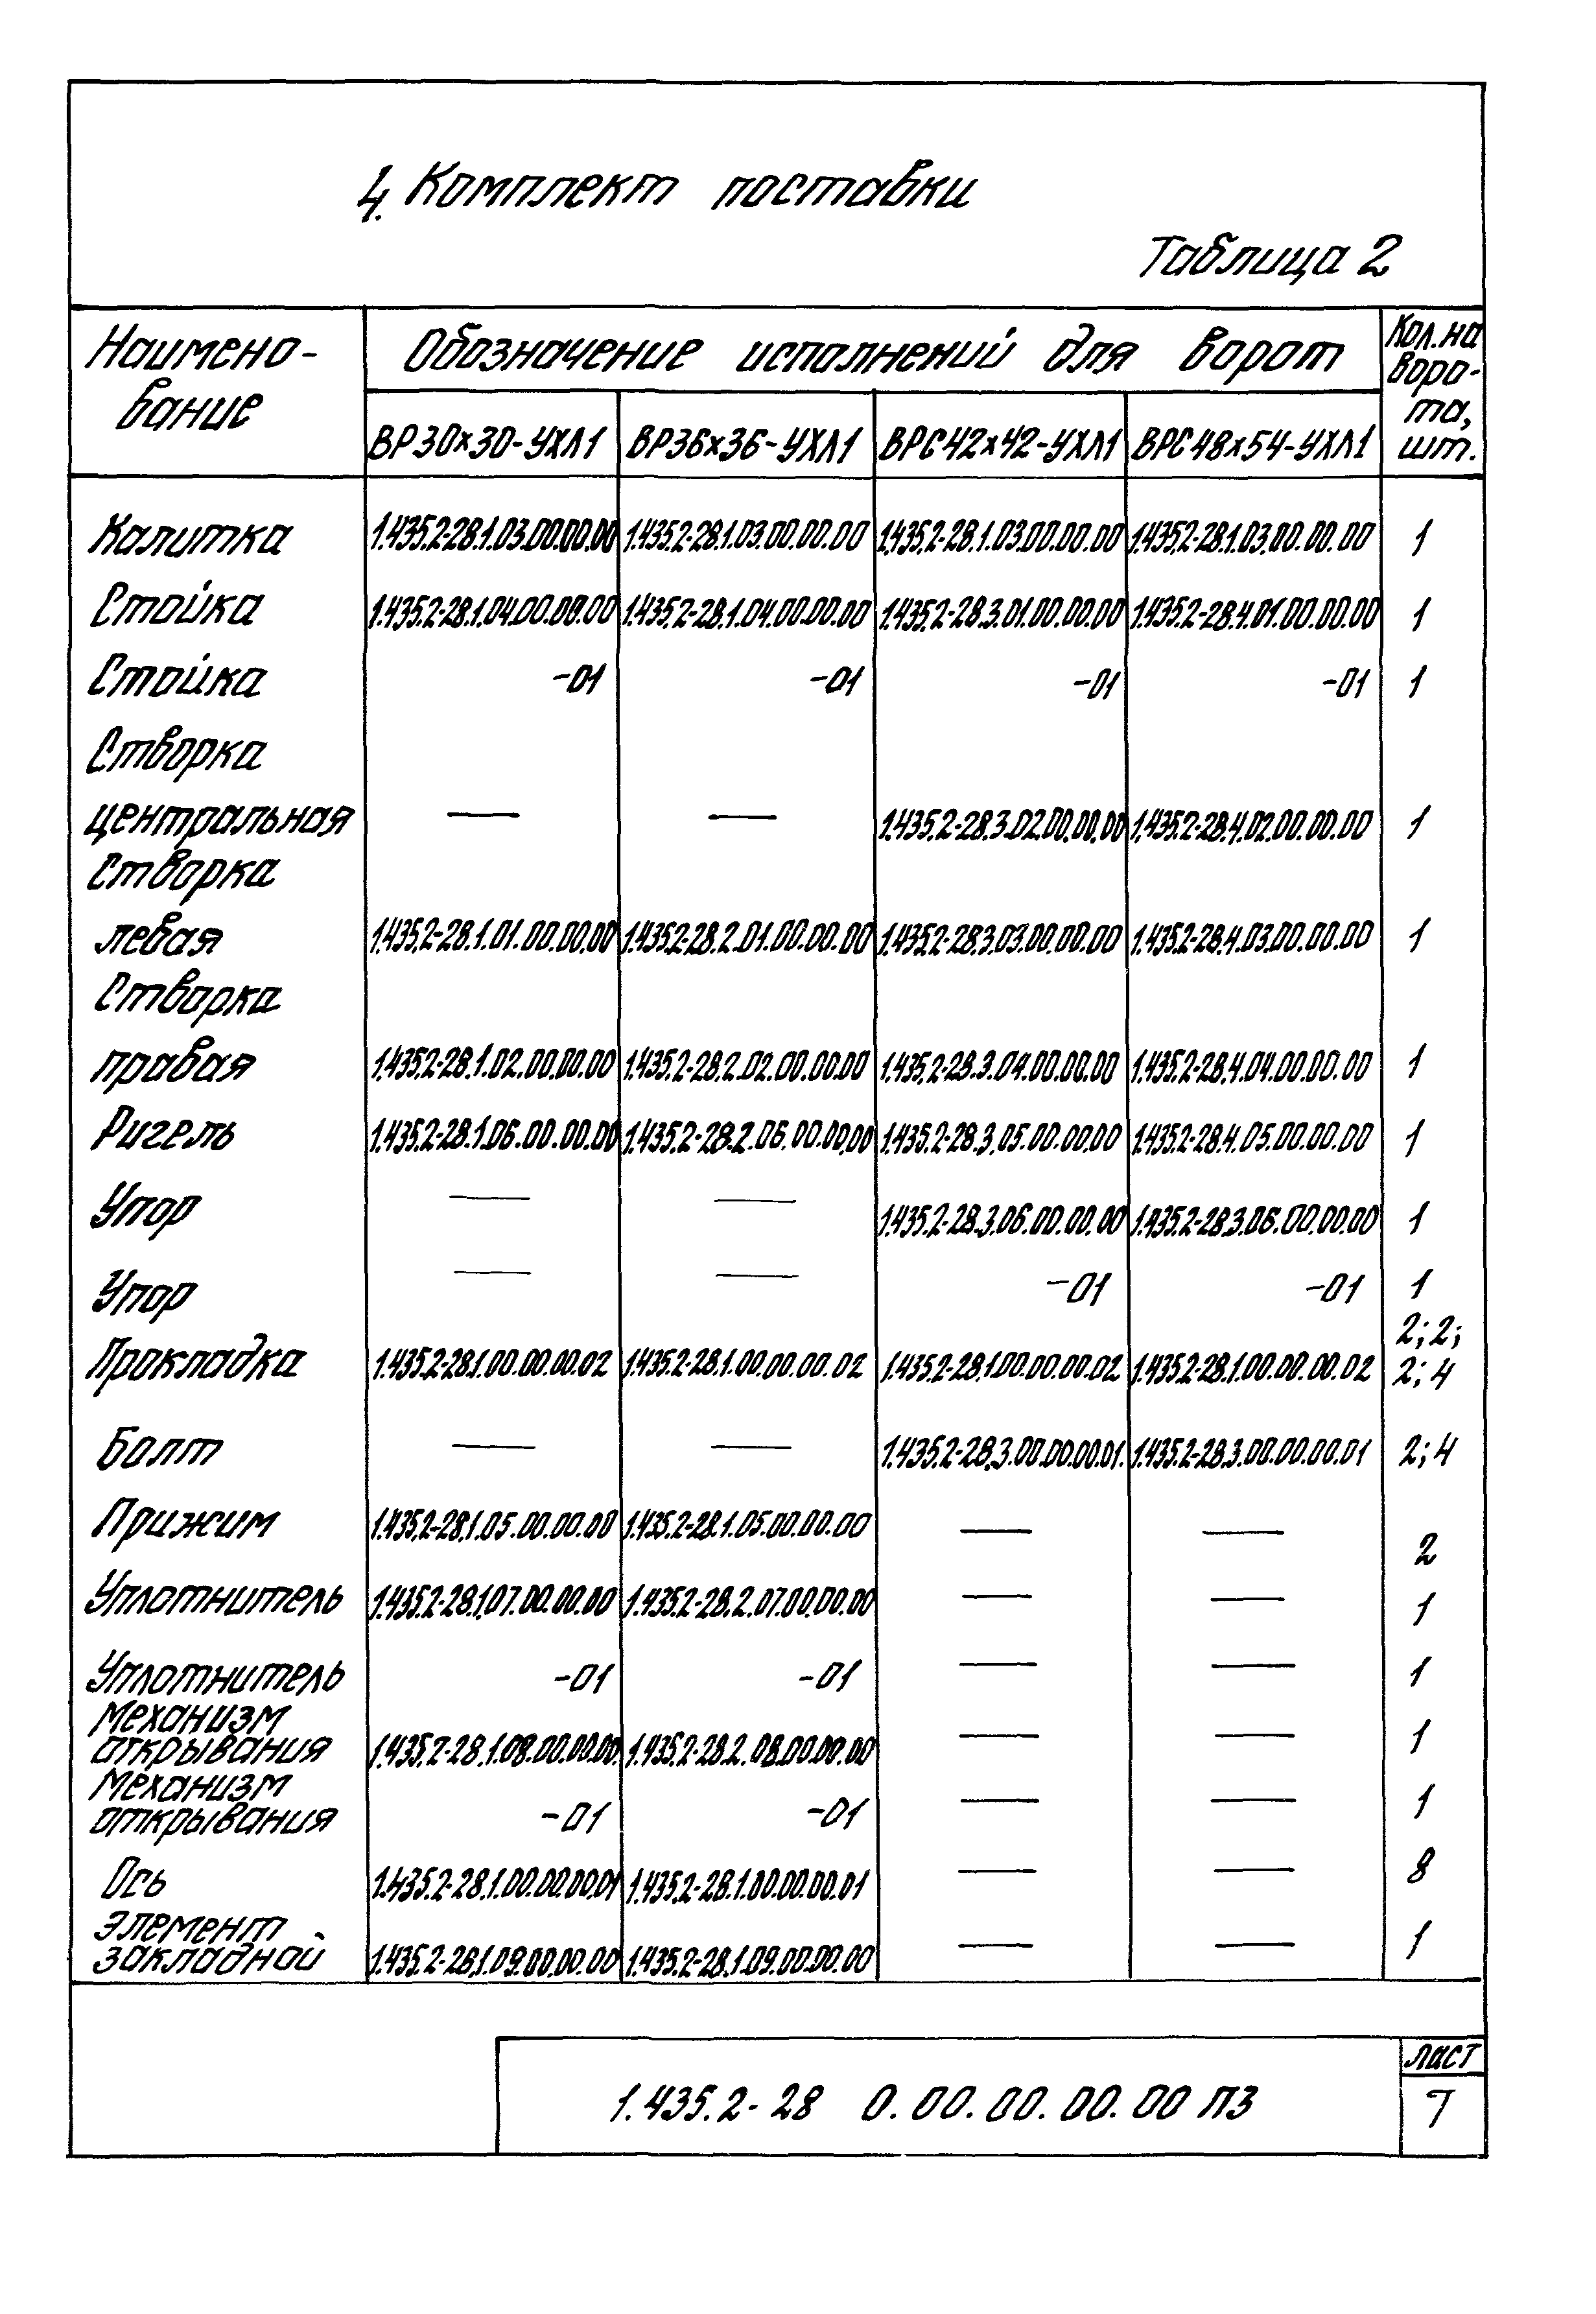 4. Комплект поставки
Таблица 2
Наимено-
вание
Обозначение исполнений для ворот
Кол. на
воро-
та,
шт.
ВР30х30-УХЛ1 ВР36х36-УХЛ1 ВРС42х42-УХЛ1 ВРС48х54-УХЛ1
Калитка 1.435.2-28.1.03.00.00.00 1.435.2-28.1.03.00.00.00 1.435.2-28.1.03.00.00.00 1.435.2-28.1.03.00.00.00 1
Стойка 1.435.2-28.1.04.00.00.00 1.435.2-28.1.04.00.00.00 1.435.2-28.3.01.00.00.00 1.435.2-28.4.01.00.00.00 1
Стойка -01 -01 -01 -01 1
Створка
центральная — — 1.435.2-28.3.02.00.00.00 1.435.2-28.4.02.00.00.00 1
Створка
левая 1.435.2-28.1.01.00.00.00 1.435.2-28.2.01.00.00.00 1.435.2-28.3.03.00.00.00 1.435.2-28.4.03.00.00.00 1
Створка
правая 1.435.2-28.1.02.00.00.00 1.435.2-28.2.02.00.00.00 1.435.2-28.3.04.00.00.00 1.435.2-28.4.04.00.00.00 1
Ригель 1.435.2-28.1.06.00.00.00 1.435.2-28.2.06.00.00.00 1.435.2-28.3.05.00.00.00 1.435.2-28.4.05.00.00.00 1
Упор — — 1.435.2-28.3.06.00.00.00 1.435.2-28.3.06.00.00.00 1
Упор — — -01 -01 1
2; 2;
Прокладка 1.435.2-28.1.00.00.00.02 1.435.2-28.1.00.00.00.02 1.435.2-28.1.00.00.00.02 1.435.2-28.1.00.00.00.02 2; 4
Болт — — 1.435.2-28.3.00.00.00.01. 1.435.2-28.3.00.00.00.01 2; 4
Прижим 1.435.2-28.1.05.00.00.00 1.435.2-28.1.05.00.00.00 — — 2
Уплотнитель 1.435.2-28.1.07.00.00.00 1.435.2-28.2.07.00.00.00 — — 1
Уплотнитель -01 -01 — — 1
Механизм
открывания 1.435.2-28.1.08.00.00.00. 1.435.2-28.2.08.00.00.00 — — 1
Механизм
открывания -01 -01 — — 1
Ось 1.435.2-28.1.00.00.00.01 1.435.2-28.1.00.00.00.01 — — 8
Элемент
закладной 1.435.2-28.1.09.00.00.00 1.435.2-28.1.09.00.00.00 — — 1
1.435.2-28 0.00.00.00.00 ПЗ
Лист
7